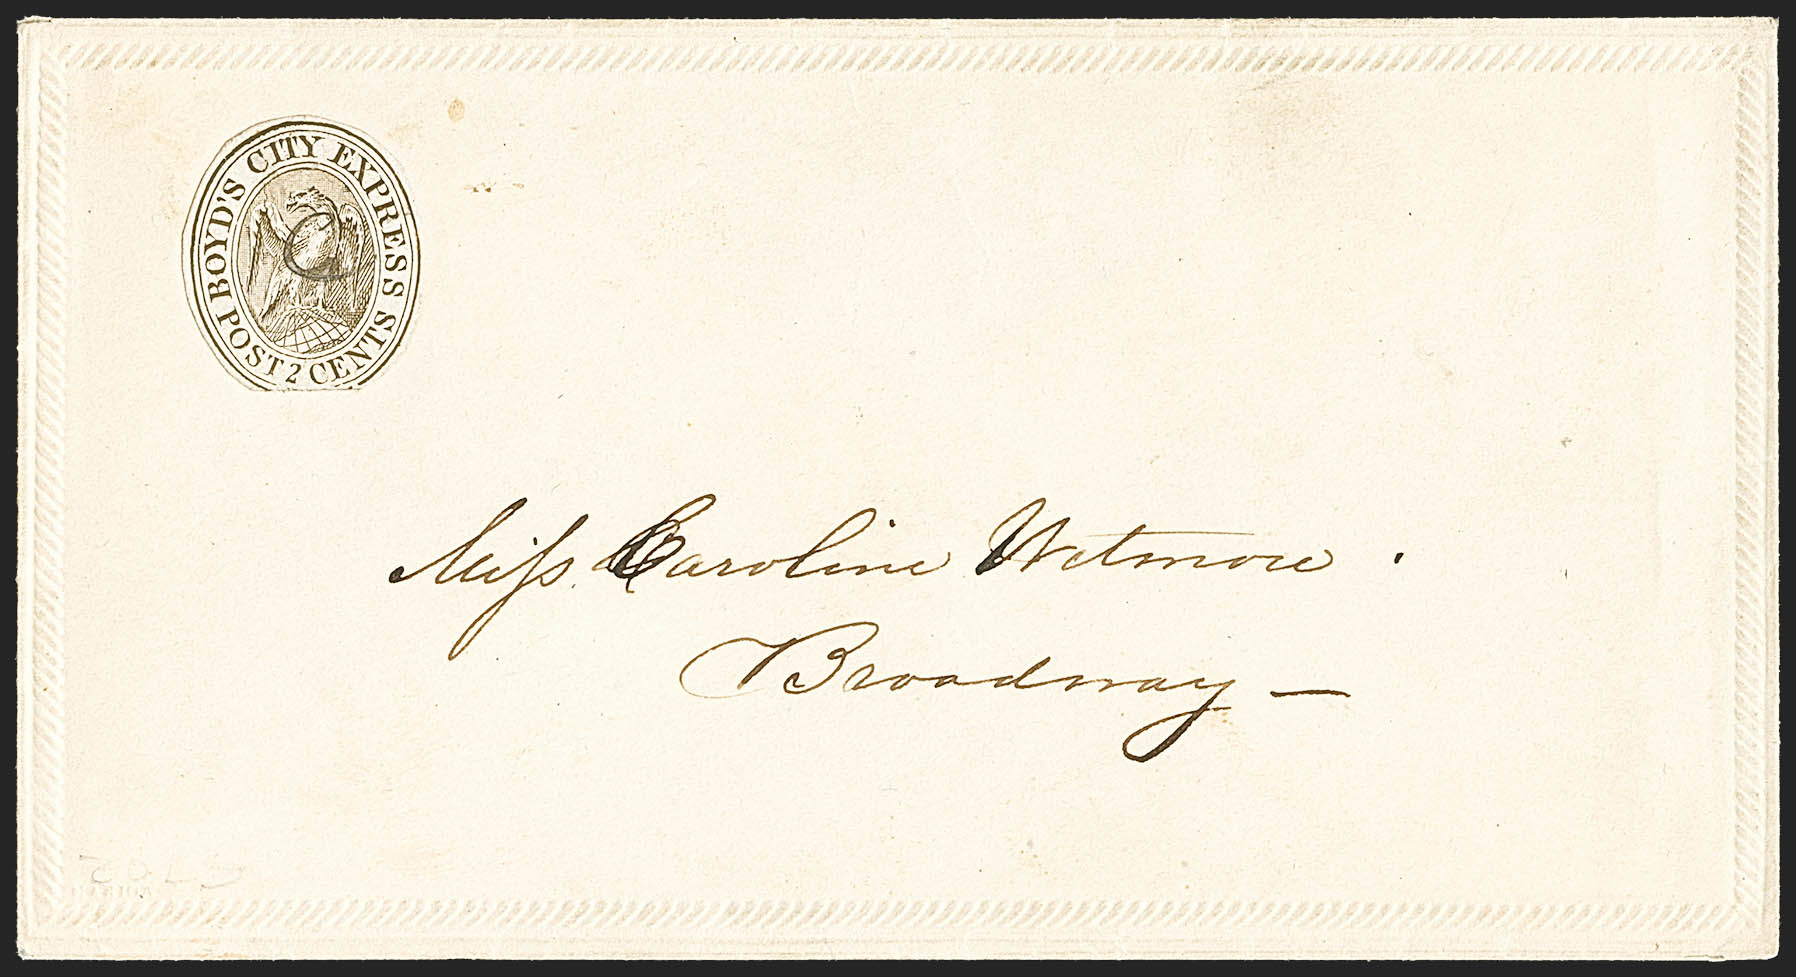 BOYD'S CITY EXPRESS
POST 2 CENTS
Miſs. Caroline Wetmore.
Broadway —